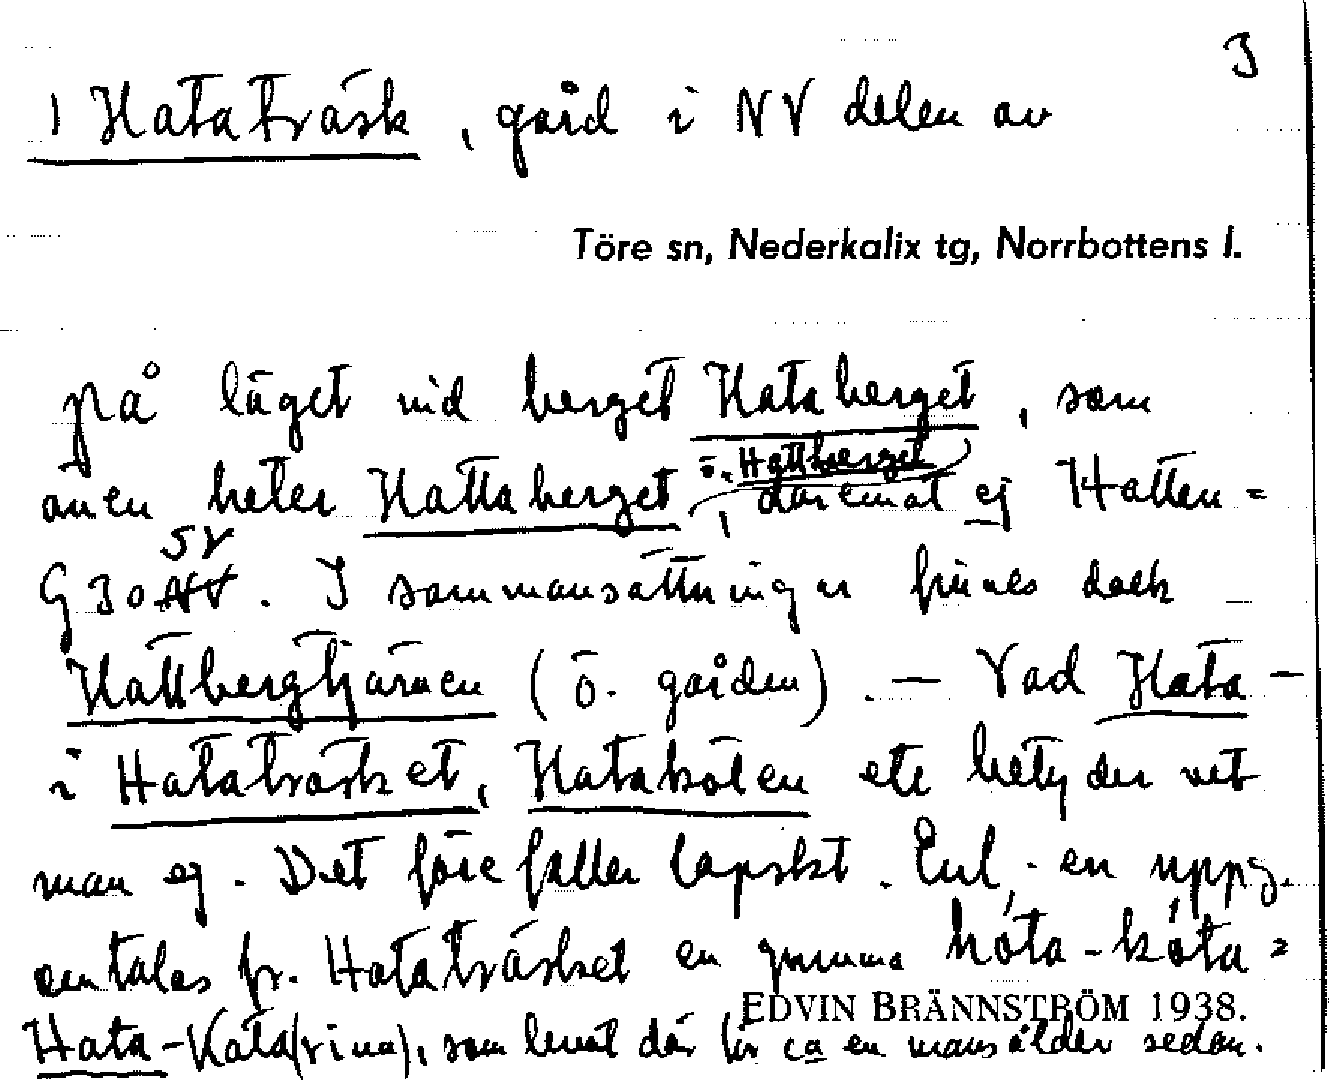 J
1 Hataträsk, gård i NV delen av
Töre sn, Nederkalix tg, Norrbottens l.
på läget vid berget Hataberget, som
även heter Hattaberget (ö. Hattberget), däremot ej Hatten =
G30 SV. I sammansättningar finnes dock
Hattbergtjärnen (ö. gården). — Vad Hata-
i Hataträsket, Hatakölen etc betyder vet
man ej. Det förefaller lapskt. Enl. en uppg.
omtalas fr. Hataträsket en gumma hóta-kóta =
EDVIN BRÄNNSTRÖM 1938.
Hata-Kata(rina), som levat där för ca en mansålder sedan.